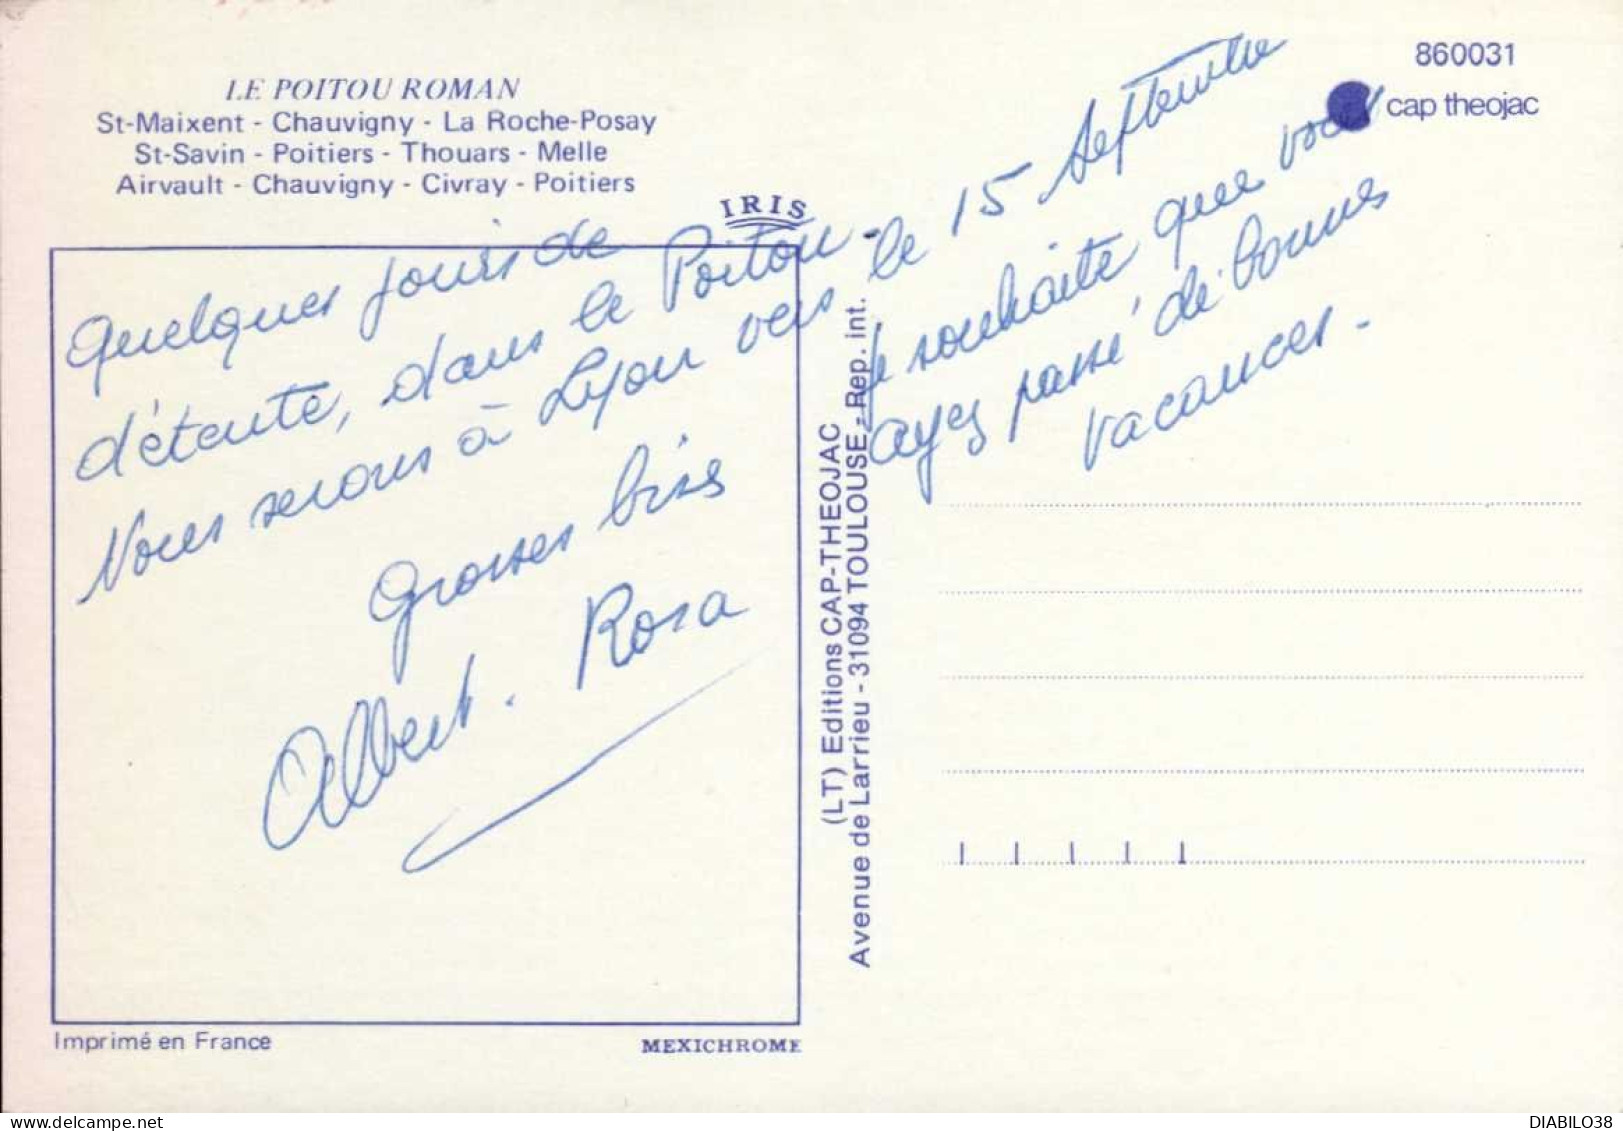 LE POITOU ROMAN
St-Maixent - Chauvigny - La Roche-Posay
St-Savin - Poitiers - Thouars - Melle
Airvault - Chauvigny - Civray - Poitiers
IRIS
860031
cap theojac
Quelques jours de
détente, dans le Poitou -
Nous serons à Lyon vers le 15 Septembre
Je souhaite que vous
ayez passé de bonnes
vacances.
Grosses bises
Albert. Rosa
(LT) Editions CAP-THEOJAC
Avenue de Larrieu - 31094 TOULOUSE - Rep. int.
Imprimé en France
MEXICHROME
DIABILO38